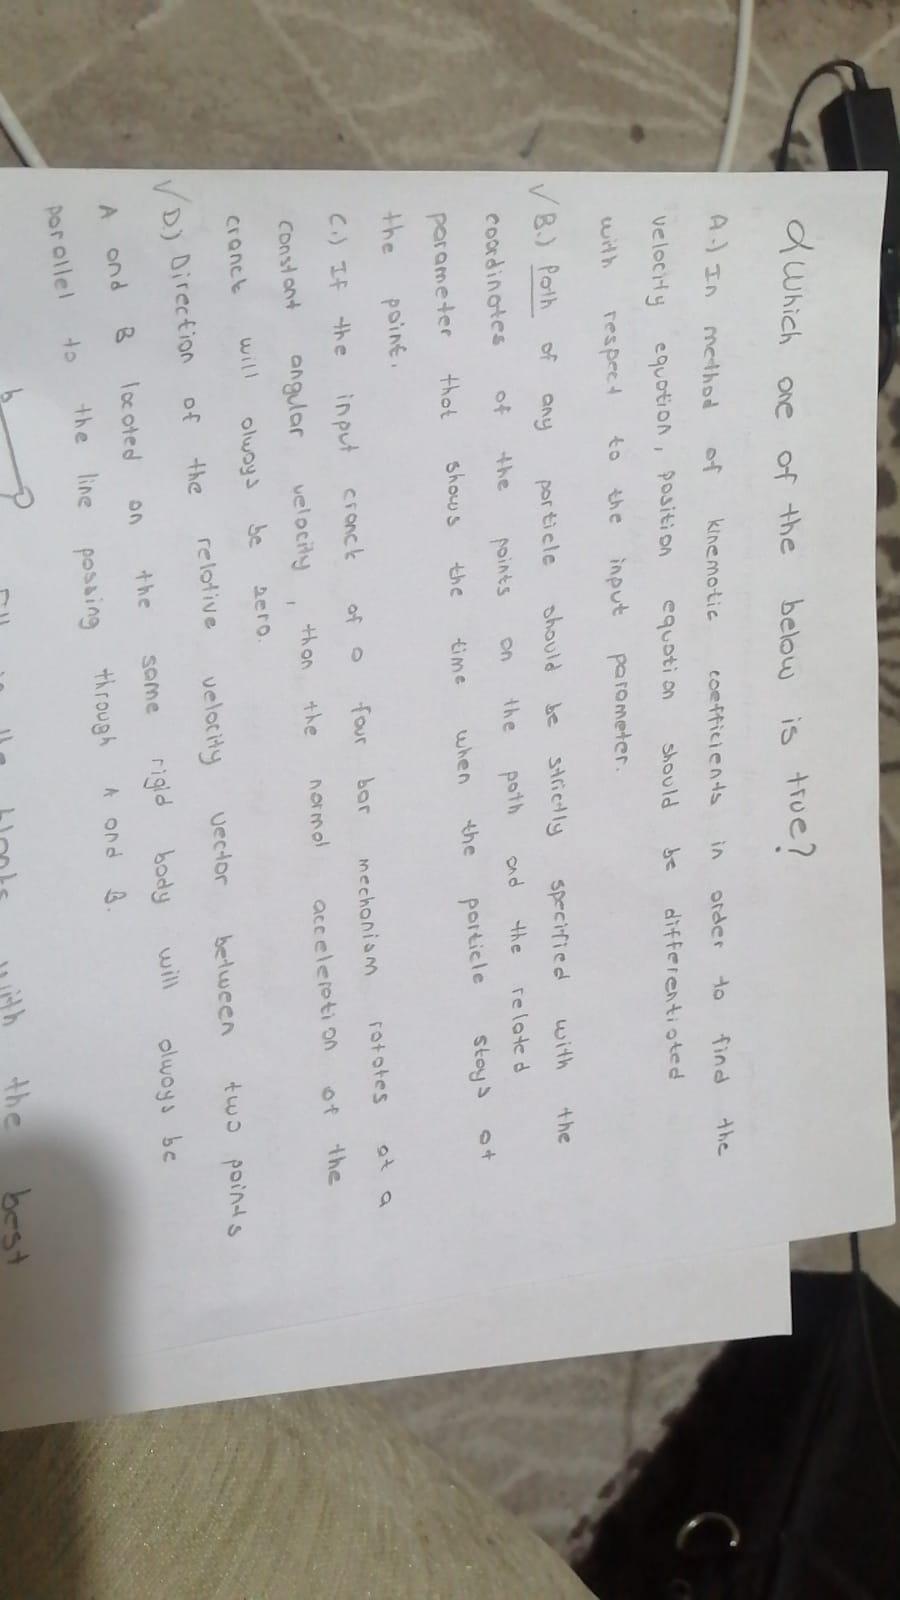 a) Which one of the below is true?
A.) In method of kinematic coefficients in order to find the
velocity equation, position equation should be differentiated
with respect to the input parameter.
√ B.) Path of any particle should be strictly specified with the
coordinates of the points on the path and the related
parameter that shows the time when the particle stays at
the point.
C.) If the input cranck of a four bar mechanism rotates at a
constant angular velocity, than the normal acceleration of the
cranck will always be zero.
√ D.) Direction of the relative velocity vector between two points
A and B located on the same rigid body will always be
parallel to the line passing through A and B.
b with the best